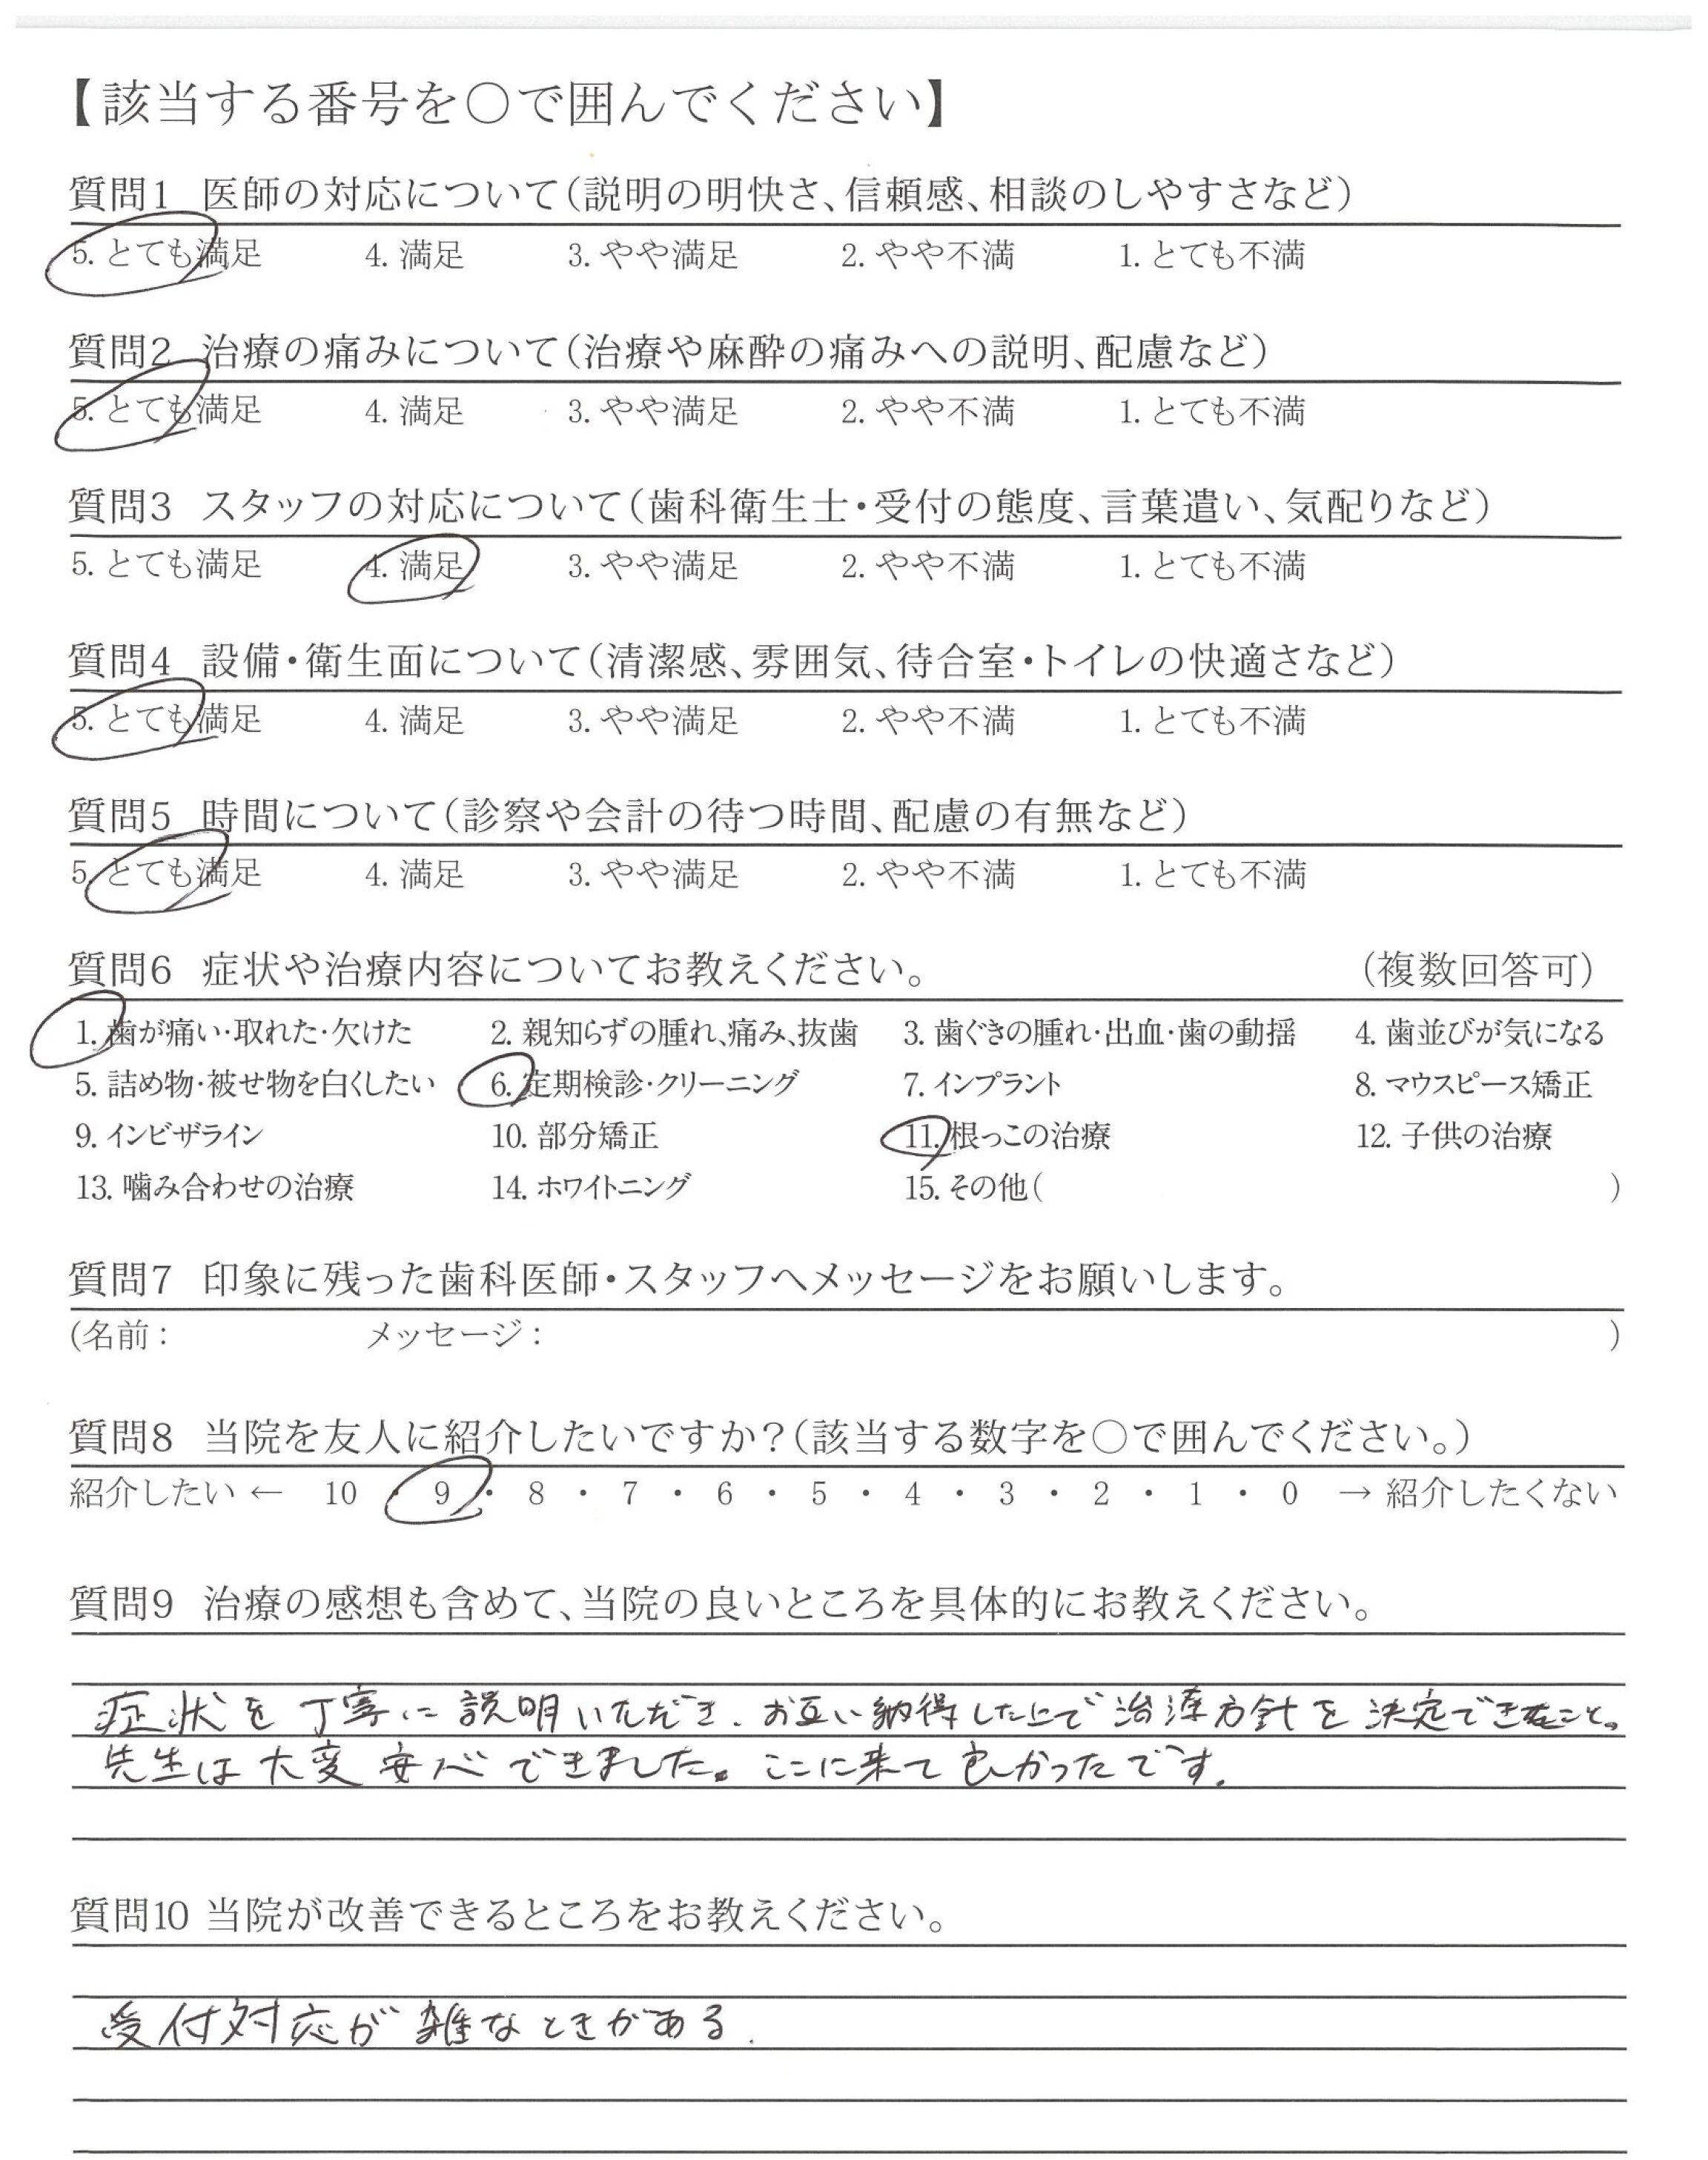 【該当する番号を○で囲んでください】
質問1 医師の対応について(説明の明快さ、信頼感、相談のしやすさなど)
5. とても満足 4. 満足 3. やや満足 2. やや不満 1. とても不満
質問2 治療の痛みについて(治療や麻酔の痛みへの説明、配慮など)
5. とても満足 4. 満足 3. やや満足 2. やや不満 1. とても不満
質問3 スタッフの対応について(歯科衛生士・受付の態度、言葉遣い、気配りなど)
5. とても満足 4. 満足 3. やや満足 2. やや不満 1. とても不満
質問4 設備・衛生面について(清潔感、雰囲気、待合室・トイレの快適さなど)
5. とても満足 4. 満足 3. やや満足 2. やや不満 1. とても不満
質問5 時間について(診察や会計の待つ時間、配慮の有無など)
5. とても満足 4. 満足 3. やや満足 2. やや不満 1. とても不満
質問6 症状や治療内容についてお教えください。 (複数回答可)
1. 歯が痛い・取れた・欠けた 2. 親知らずの腫れ、痛み、抜歯 3. 歯ぐきの腫れ・出血・歯の動揺 4. 歯並びが気になる
5. 詰め物・被せ物を白くしたい 6. 定期検診・クリーニング 7. インプラント 8. マウスピース矯正
9. インビザライン 10. 部分矯正 11. 根っこの治療 12. 子供の治療
13. 噛み合わせの治療 14. ホワイトニング 15. その他( )
質問7 印象に残った歯科医師・スタッフへメッセージをお願いします。
(名前: メッセージ: )
質問8 当院を友人に紹介したいですか?(該当する数字を○で囲んでください。)
紹介したい ← 10 ・ 9 ・ 8 ・ 7 ・ 6 ・ 5 ・ 4 ・ 3 ・ 2 ・ 1 ・ 0 → 紹介したくない
質問9 治療の感想も含めて、当院の良いところを具体的にお教えください。
症状を丁寧に説明いただき、お互い納得した上で治療方針を決定できたこと。
先生は大変安心できました。ここに来て良かったです。
質問10 当院が改善できるところをお教えください。
受付対応が雑なときがある.